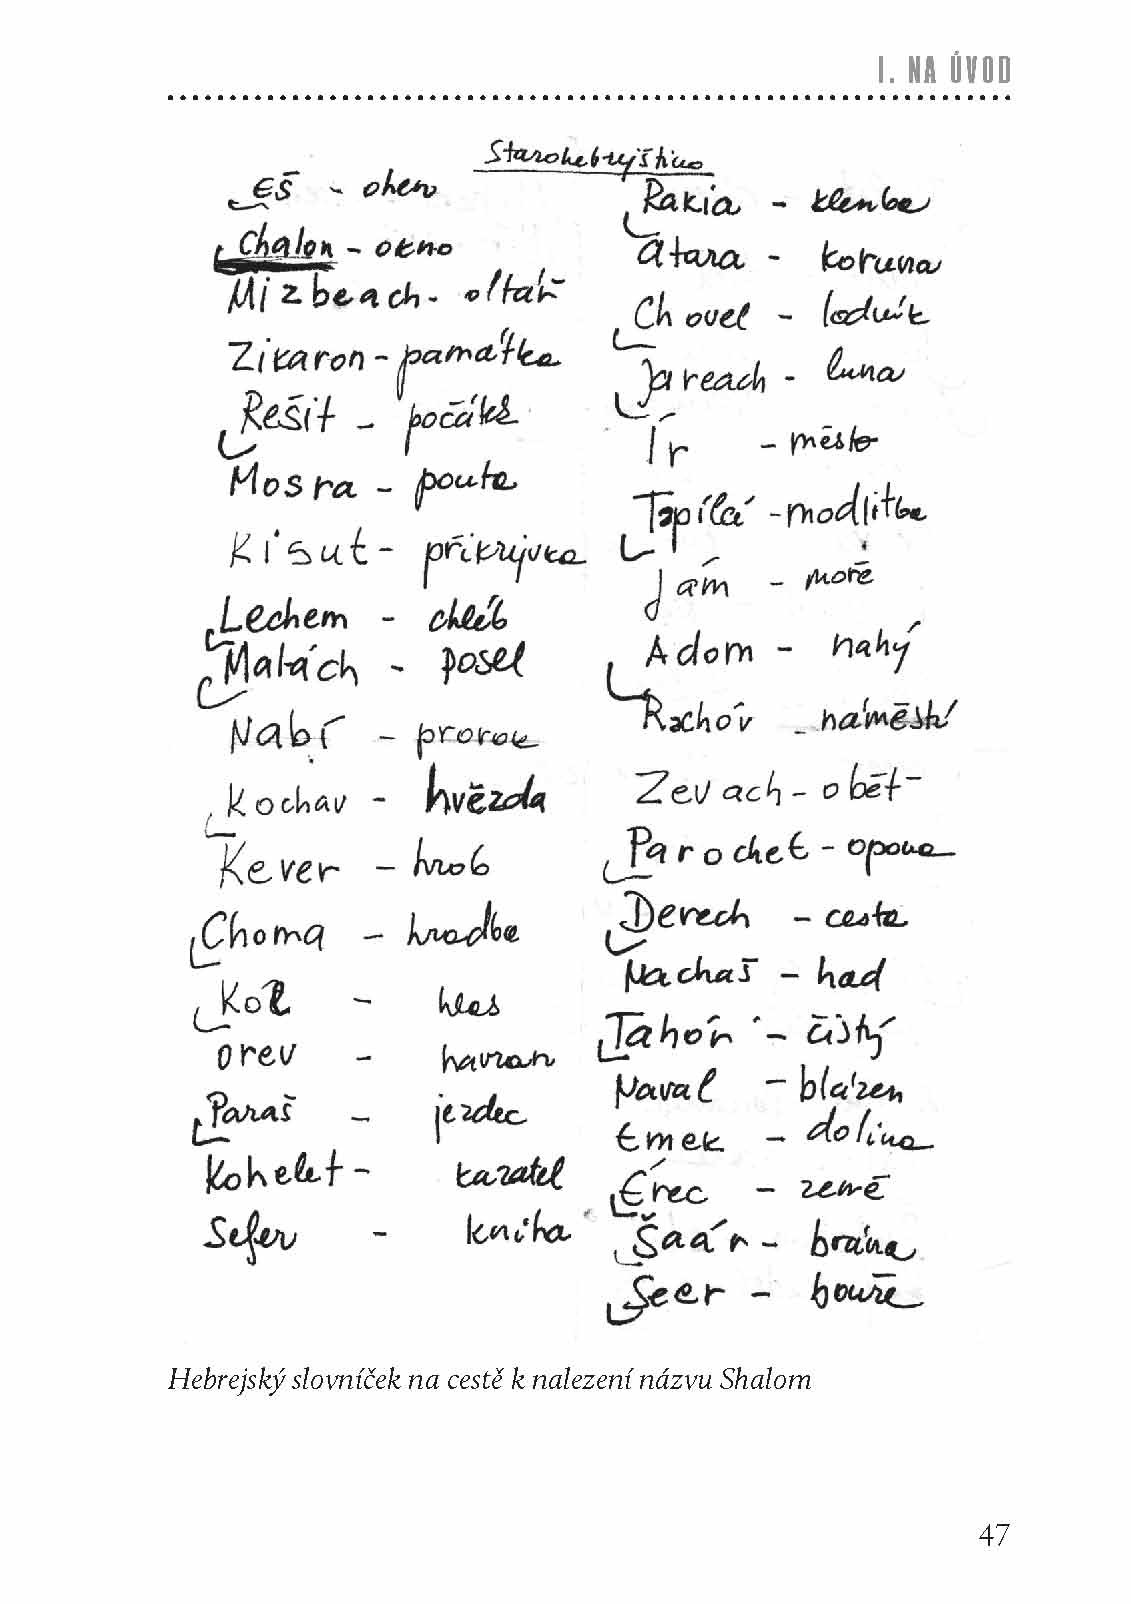 I. NA ÚVOD
Starohebrejština
Eš - oheň
Chalon - okno
Mizbeach - oltář
Zikaron - památka
Rešit - počátek
Mosra - pouta
Kisut - přikrývka
Lechem - chléb
Malách - posel
Nabí - prorok
Kochav - hvězda
Kever - hrob
Choma - hradba
Kol - hlas
Orev - havran
Paraš - jezdec
Kohelet - kazatel
Sefer - kniha
Rakia - klenba
Atara - koruna
Chovel - lodník
Jareach - luna
Ír - město
Tepilá - modlitba
Jám - moře
Adom - nahý
Rechóv - náměstí
Zevach - oběť
Parochet - opona
Derech - cesta
Nachaš - had
Tahór - čistý
Naval - blázen
Emek - dolina
Érec - země
Šaár - brána
Seer - bouře
Hebrejský slovníček na cestě k nalezení názvu Shalom
47